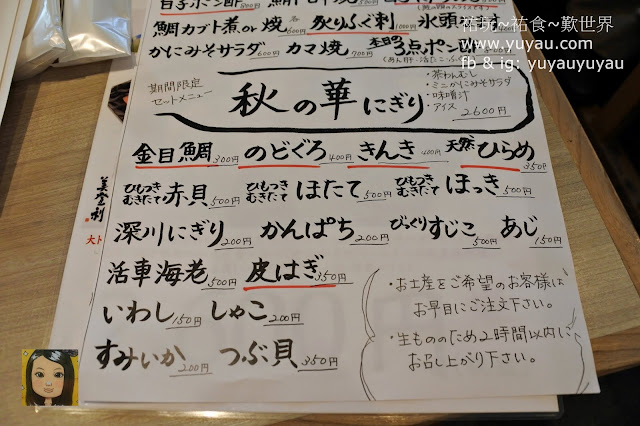 白子ポン酢 800円
鯛カブト煮or焼 各600円 炙りふぐ刺 氷頭なます
かにみそサラダ 600円 カマ焼 700円 本日の3点ポン酢
祐玩~祐食~歎世界
www.yuyau.com
fb & ig: yuyauyuyau
期間限定
セットメニュー
秋の華にぎり
・茶わんむし
・ミニかにみそサラダ
・味噌汁
・アイス
2600円
金目鯛 300円 のどぐろ 400円 きんき 400円 天然ひらめ 350円
ひもつき むきたて 赤貝 500円 ひもつき むきたて ほたて 500円 ひもつき むきたて ほっき 500円
深川にぎり 200円 かんぱち 200円 びっくりすじこ 500円 あじ 150円
活車海老 500円 皮はぎ 350円
いわし 150円 しゃこ 200円
すみいか 200円 つぶ貝 350円
・お土産をご希望のお客様は
お早目にご注文下さい。
・生もののため2時間以内に
お召し上がり下さい。
美登利